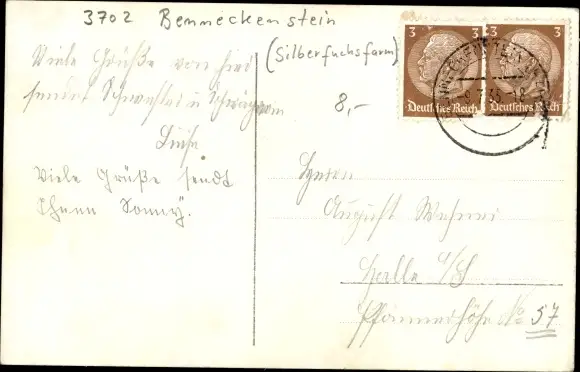 3702 Benneckenstein
(Silberfuchsfarm)
8,-
3 3
Deutsches Reich Deutsches Reich
Viele Grüße von hier
sendet Schwester u. Schwager
Luise
Viele Grüße sendt
Ihnen Sonny.
Herrn
August
Halle a/S
Pfännerhöhe No 57